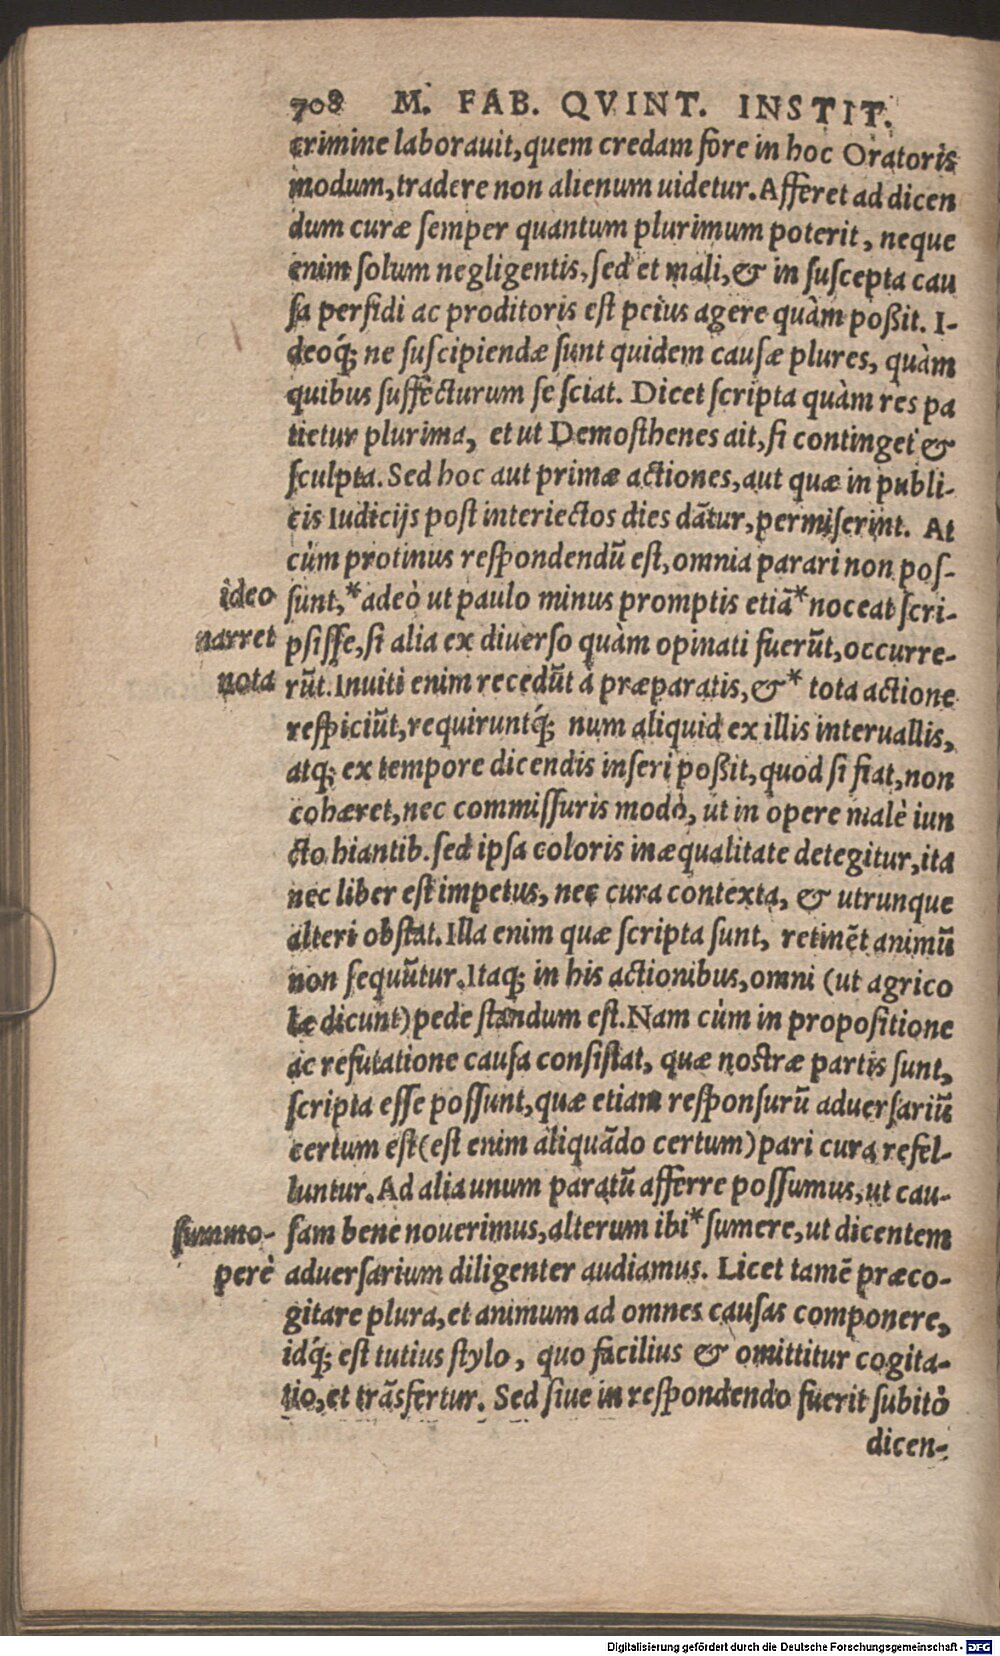 708 M. FAB. QVINT. INSTIT.
crimine laborauit, quem credam fore in hoc Oratoris
modum, tradere non alienum uidetur. Afferet ad dicen
dum curæ semper quantum plurimum poterit, neque
enim solum negligentis, sed et mali, & in suscepta cau
sa perfidi ac proditoris est peius agere quàm poßit. I-
deoq́; ne suscipiendæ sunt quidem causæ plures, quàm
quibus suffecturum se sciat. Dicet scripta quàm res pa
tietur plurima, et ut Demosthenes ait, si continget &
sculpta. Sed hoc aut primæ actiones, aut quæ in publi-
cis Iudicijs post interiectos dies dãtur, permiserint. At
cùm protinus respondendũ est, omnia parari non pos-
ideo sunt,* adeò ut paulo minus promptis etiã* noceat scri-
narret psisse, si alia ex diuerso quàm opinati fuerũt, occurre-
nota rũt. Inuiti enim recedũt à præparatis, &* tota actione
respiciũt, requiruntq́; num aliquid ex illis interuallis,
atq; ex tempore dicendis inseri poßit, quod si fiat, non
cohæret, nec commissuris modò, ut in opere malè iun
cto hiantib. sed ipsa coloris inæqualitate detegitur, ita
nec liber est impetus, nec cura contexta, & utrunque
alteri obstat. Illa enim quæ scripta sunt, retinẽt animũ
non sequũtur. Itaq; in his actionibus, omni (ut agrico
læ dicunt) pede standum est. Nam cùm in propositione
ac refutatione causa consistat, quæ nostræ partis sunt,
scripta esse possunt, quæ etiam responsurũ aduersariũ
certum est (est enim aliquãdo certum) pari cura refel-
luntur. Ad alia unum paratũ afferre possumus, ut cau-
summo- sam bene nouerimus, alterum ibi* sumere, ut dicentem
perè aduersarium diligenter audiamus. Licet tamẽ præco-
gitare plura, et animum ad omnes causas componere,
idq́; est tutius stylo, quo facilius & omittitur cogita-
tio, et trãsfertur. Sed siue in respondendo fuerit subitò
dicen-
Digitalisierung gefördert durch die Deutsche Forschungsgemeinschaft - DFG